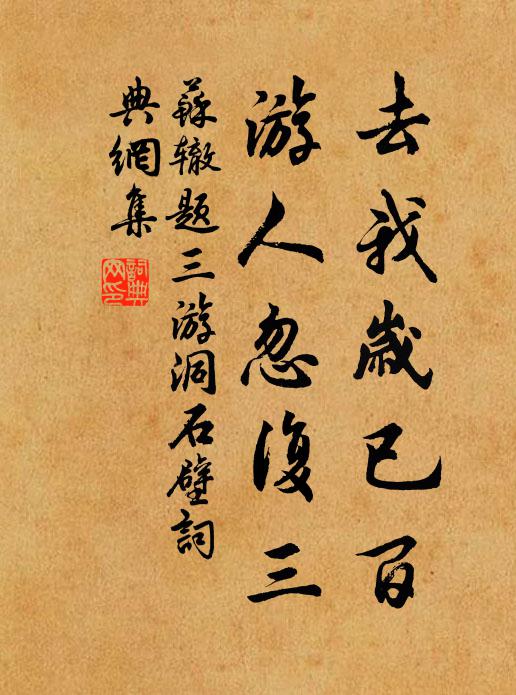 去我歲已百
游人忽復三
蘇辙題三游洞石壁詞
典網集
詞典
网印